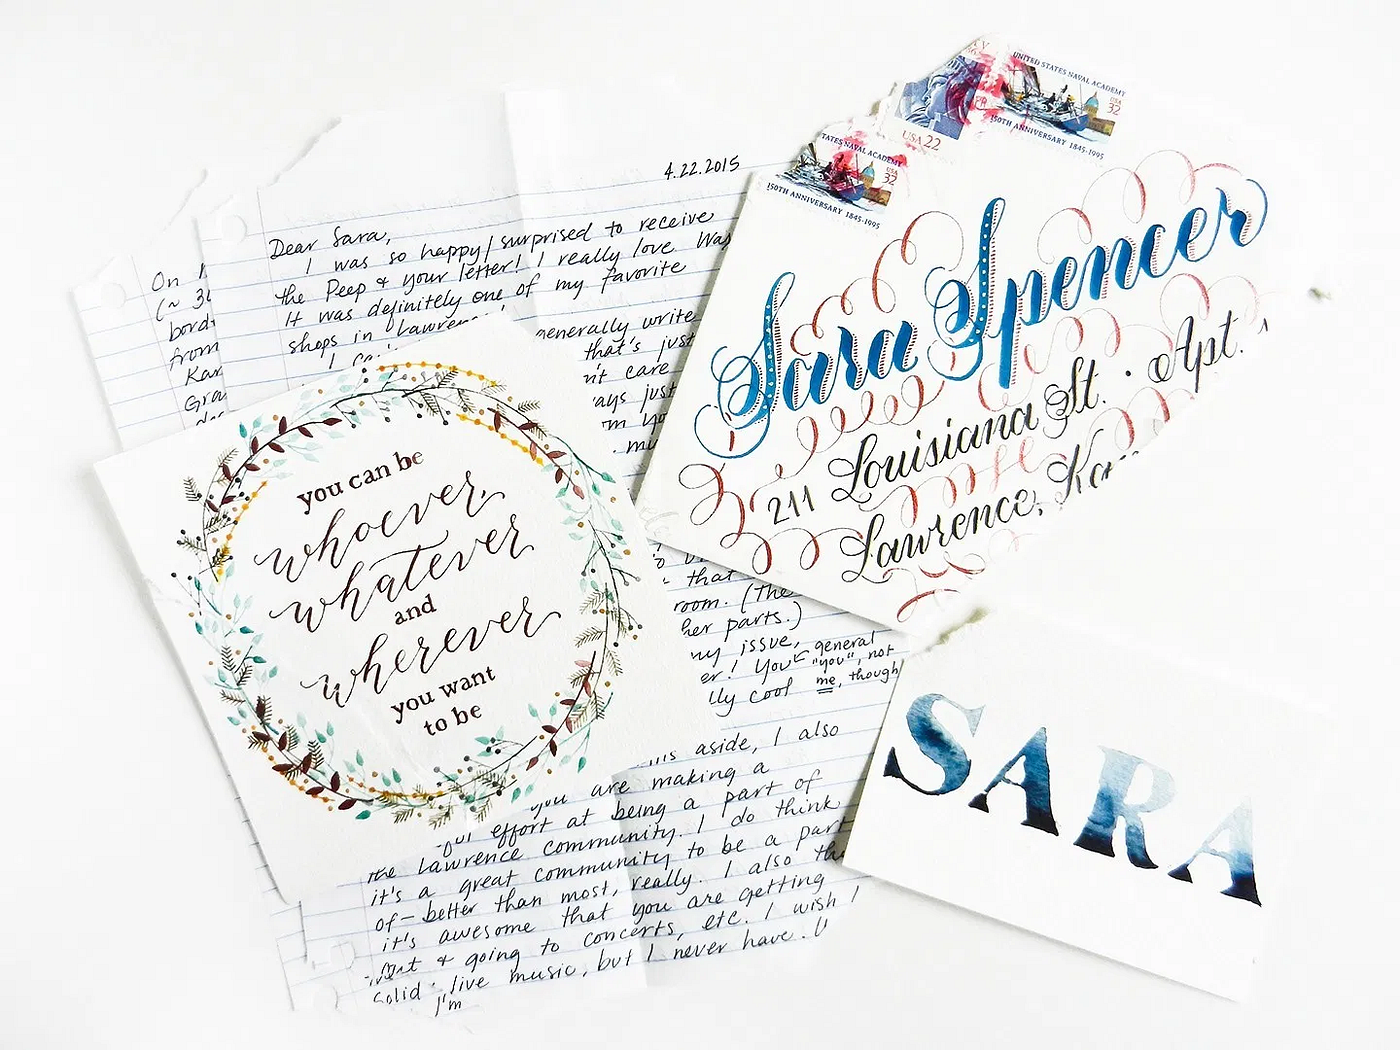 4.22.2015
Dear Sara,
I was so happy/surprised to receive
the Peep & your letter! I really love Was
It was definitely one of my favorite
shops in Lawrence
generally write
that's just
n't care
ays just
m yo
mu
On 1
(~ 30
bord
from
Kar
Gra
you can be
whoever,
whatever
and
wherever
you want
to be
UNITED STATES NAVAL ACADEMY
USA
32
150TH ANNIVERSARY 1845-1995
USA 22
TATES NAVAL ACADEMY
USA
32
150TH ANNIVERSARY 1845-1995
Sara Spencer
211 Louisiana St. · Apt.
Lawrence, Kan
that
room. (The
her parts.)
ny issue,
er! You general
"you", not
lly cool me, though
his aside, I also
you are making a
ful effort at being a part of
the Lawrence community. I do think
it's a great community to be a part
of— better than most, really. I also th
it's awesome that you are getting
out & going to concerts, etc. I wish I
solid live music, but I never have. U
I'm
SARA